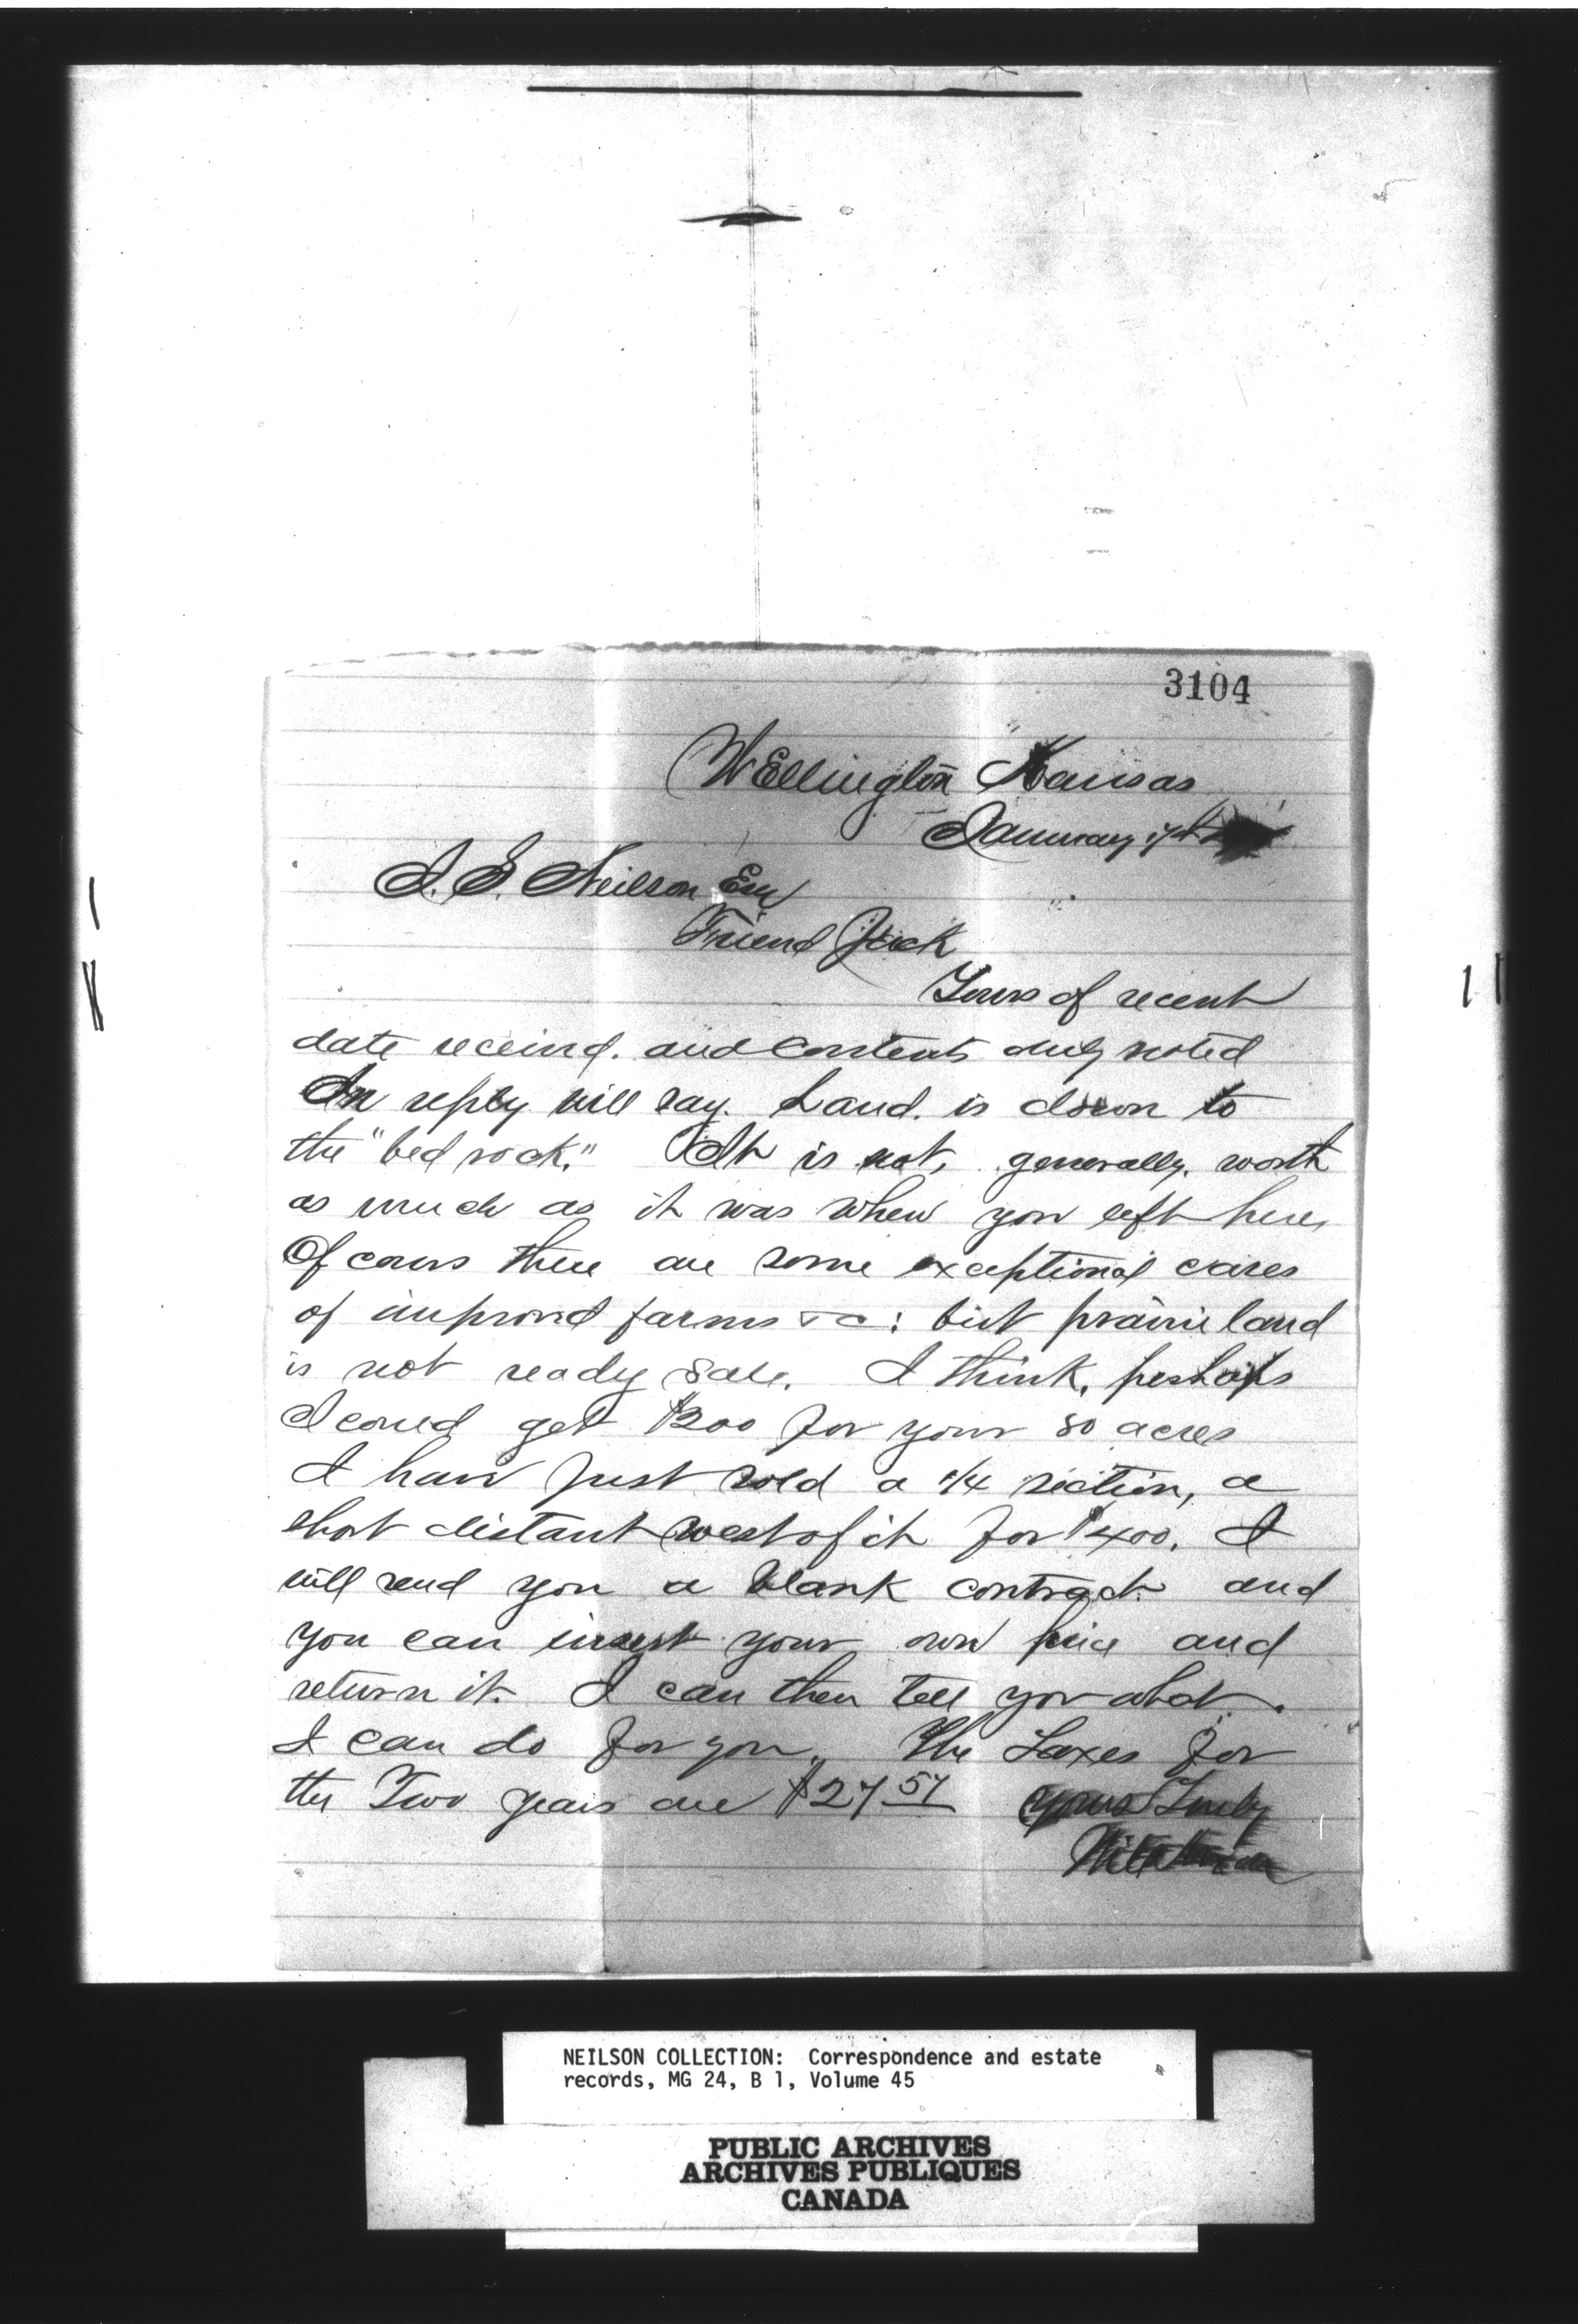 3104
Wellington Kansas
January 17th
I. S. Neilson Esq
Friend Jack
Yours of recent
date received. and contents duly noted
In reply will say. Land. is down to
the "bed rock." It is not, generally, worth
as much as it was when you left here,
Of cours there are some exceptional cases
of improved farms &c: but prairie land
is not ready sale. I think, perhaps
I could get $200 for your 80 acres
I have just sold a 1/4 section, a
short distant west of it for $400. I
will send you a blank contract and
you can insert your own price and
return it. I can then tell you what
I can do for you. The Taxes for
the Two years are $27 57 yours Truly
NEILSON COLLECTION: Correspondence and estate
records, MG 24, B 1, Volume 45
PUBLIC ARCHIVES
ARCHIVES PUBLIQUES
CANADA